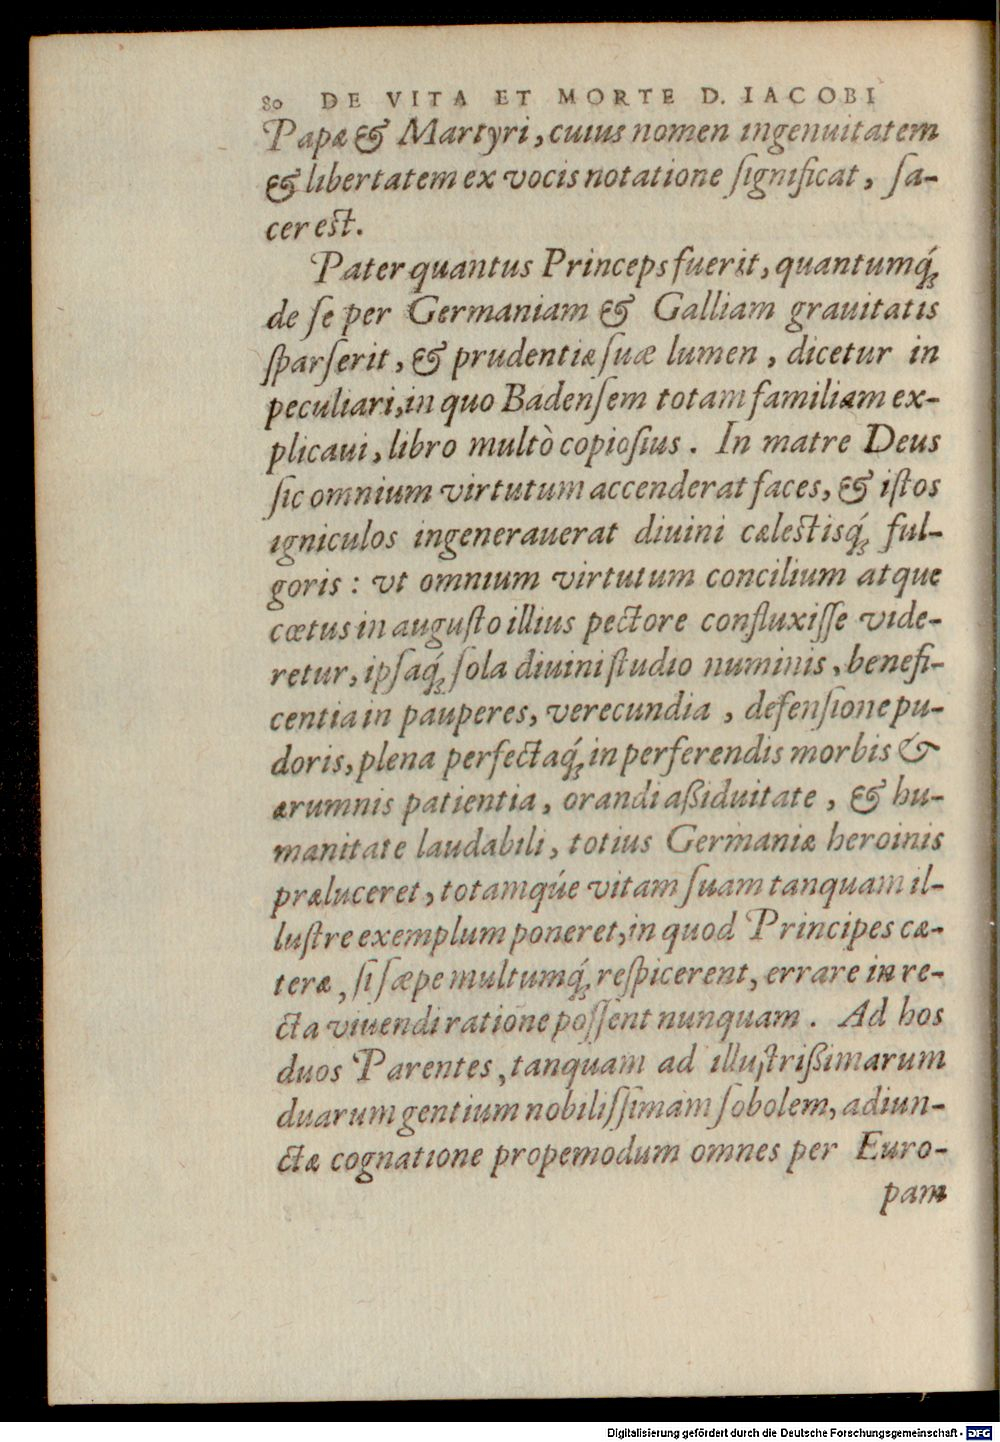 80 DE VITA ET MORTE D. IACOBI
Papæ & Martyri, cuius nomen ingenuitatem
& libertatem ex vocis notatione ſignificat, ſa-
cer est.
Pater quantus Princeps fuerit, quantumq́;
de ſe per Germaniam & Galliam grauitatis
ſparſerit, & prudentiæ ſuæ lumen, dicetur in
peculiari, in quo Badenſem totam familiam ex-
plicaui, libro multò copioſius. In matre Deus
ſic omnium virtutum accenderat faces, & iſtos
igniculos ingenerauerat diuini cælestisq́; ful-
goris: vt omnium virtutum concilium atque
cœtus in auguſto illius pectore confluxiſſe vide-
retur, ipſaq́; ſola diuini ſtudio numinis, benefi-
centia in pauperes, verecundia, defenſione pu-
doris, plena perfectaq́; in perferendis morbis &
ærumnis patientia, orandi aßiduitate, & hu-
manitate laudabili, totius Germaniæ heroinis
præluceret, totamqúe vitam ſuam tanquam il-
luſtre exemplum poneret, in quod Principes cæ-
teræ, ſi ſæpe multumq́; reſpicerent, errare in re-
cta viuendi ratione poſſent nunquam. Ad hos
duos Parentes, tanquam ad illuſtrißimarum
duarum gentium nobiliſſimam ſobolem, adiun-
ctæ cognatione propemodum omnes per Euro-
pam
Digitalisierung gefördert durch die Deutsche Forschungsgemeinschaft - DFG